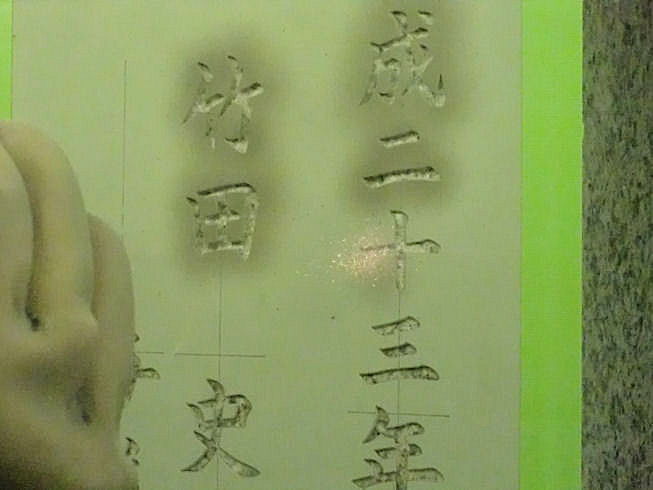 成二十三年
竹田史